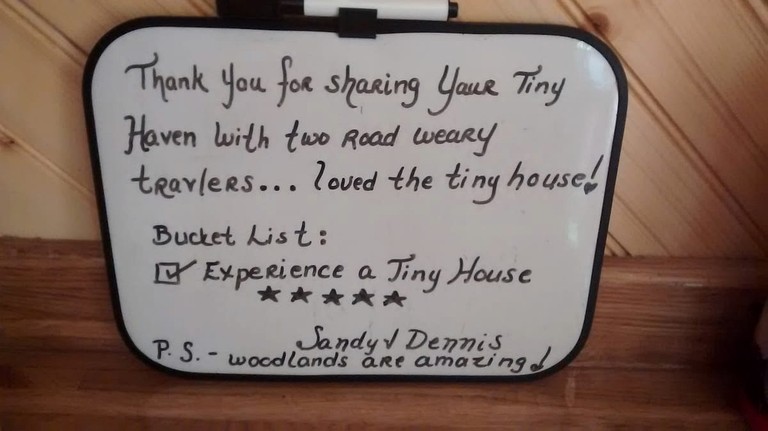 Thank You for sharing Your Tiny
Haven with two Road weary
travlers... loved the tiny house!
Bucket List:
☑ Experience a Tiny House
★ ★ ★ ★ ★
Sandy & Dennis
P.S. - woodlands are amazing!